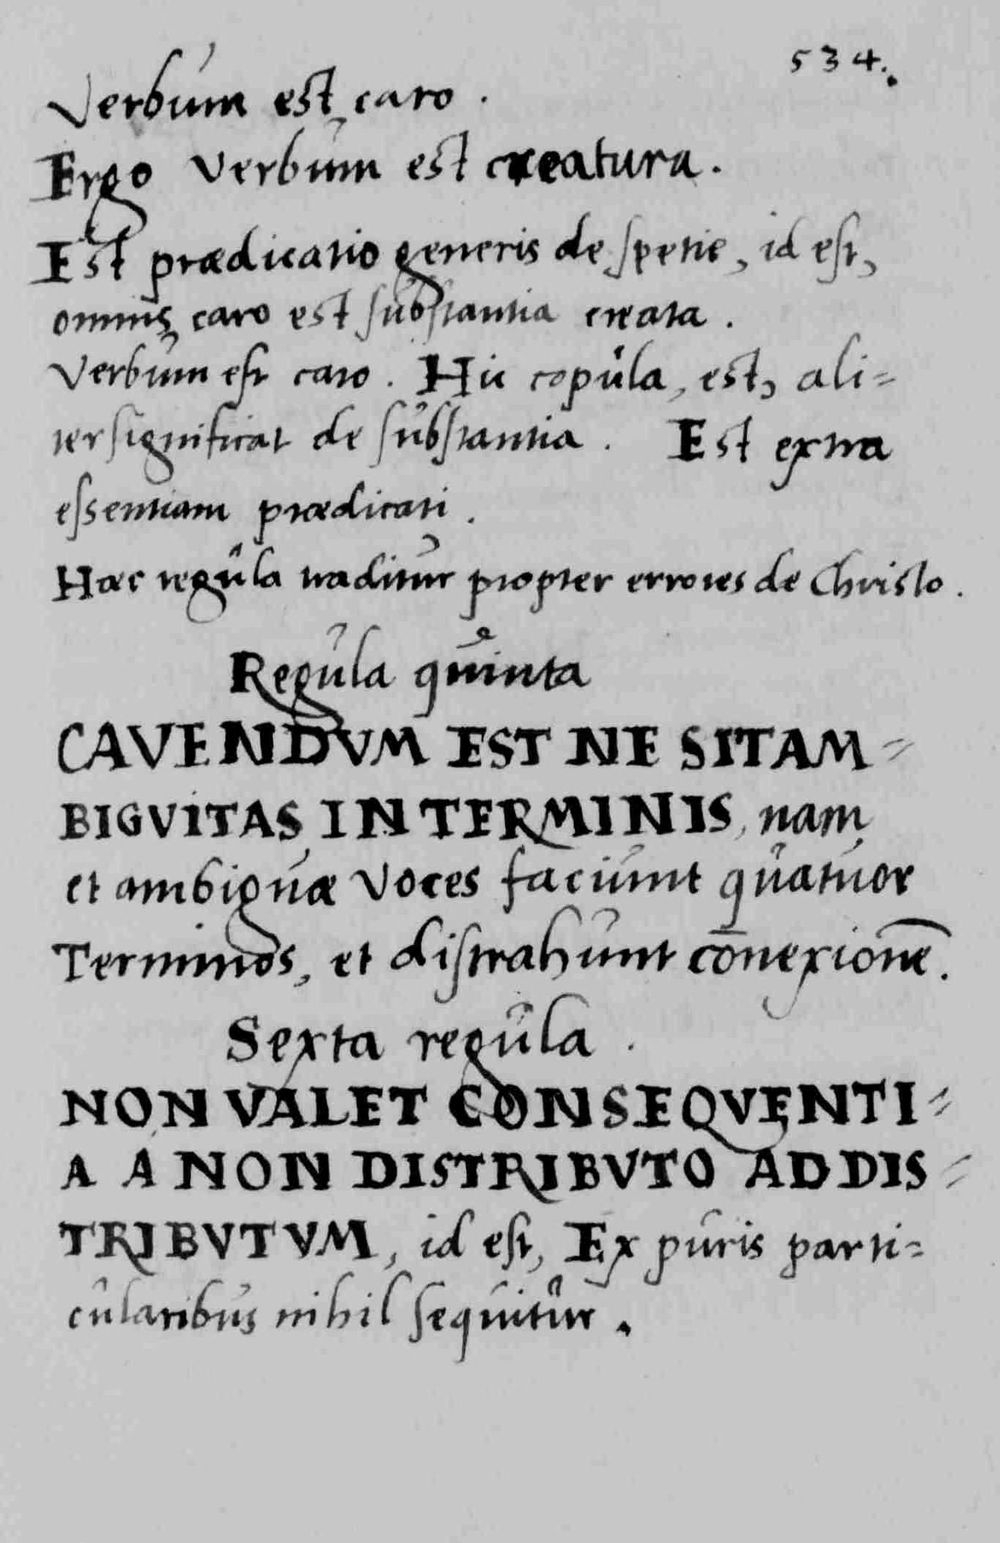 534.
Verbum est caro.
Ergo Verbum est creatura.
Est prædicatio generis de spetie, id est,
omnis caro est substantia creata.
Verbum est caro. Hic copula, est, ali=
ter significat de substantia. Est extra
essentiam prædicati.
Haec regula traditur propter errores de Christo.
Regula quinta
CAVENDVM EST NE SIT AM=
BIGVITAS IN TERMINIS, nam
et ambiguæ voces faciunt quatuor
Terminos, et distrahunt cōnexionē.
Sexta regula.
NON VALET CONSEQVENTI=
A A NON DISTRIBVTO AD DIS=
TRIBVTVM, id est, Ex puris parti=
cularibus nihil sequitur.